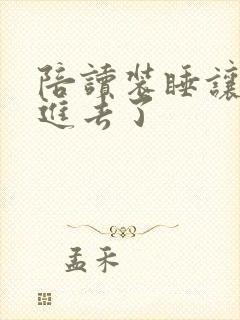 陪讀裝睡讓
進去了
孟禾